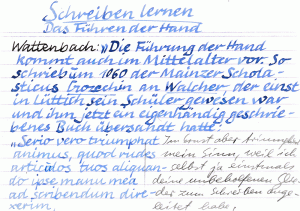 Schreiben lernen
Das Führen der Hand
Wattenbach: "Die Führung der Hand
kommt auch im Mittelalter vor. So
schrieb um 1060 der Mainzer Schola-
sticus Gozechin an Walcher, der einst
in Lüttich sein Schüler gewesen war
und ihm jetzt ein eigenhändig geschrie-
benes Buch übersandt hatte:
"Serio vero triumphat
animus, quod rudes
articulos tuos aliquan-
do ipse manu mea
ad scribendum dire-
xerim.
Im Ernst aber triumphiert
mein Sinn, weil ich
selbst ja einstmals
deine unbeholfenen Glie-
der zum Schreiben ange-
leitet habe.